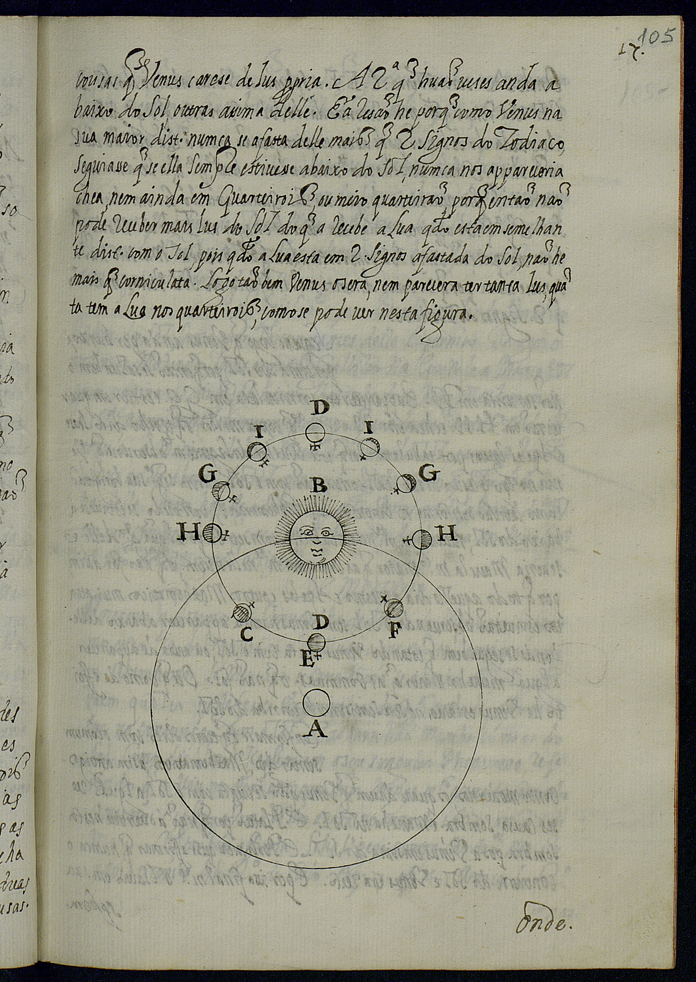 105
17.
cousas q̃ Venus carese de lus ppria. A 2ª q̃ huãs veses anda a
baixo do Sol outras asima delle. E a resaõ he porq̃ como Venus na
sua maior dist. numca se afasta delle mais q̃ 2 signos do Zodiaco,
seguiasse q̃ se ella semple estivese abaixo do Sol, numca nos appareceria
chea, nem ainda em Quarteirois, ou meio quarteiraõ, porq̃ entaõ naõ
pode receber mais lus do Sol do q̃ a recebe a Lua qdo esta em semelhan
te dist. com o Sol, pois qdo a Lua esta em 2 signos afastada do Sol, naõ he
mais q̃ corniculata. Logo taõ bem Venus o sera, nem parecera ter tanta lus, quã
ta tem a Lua nos quarteirois, como se pode ver nesta figura.
D
I I
G B G
H H
C D F
E
A
onde.